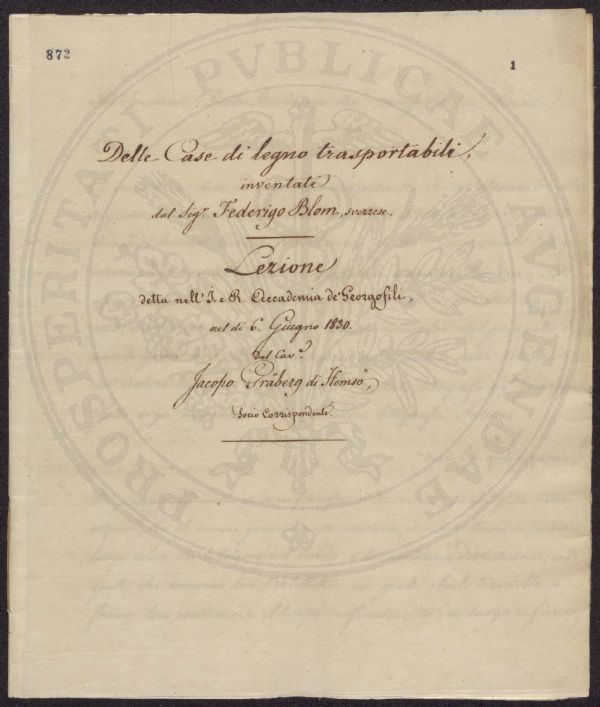 872
1
PROSPERITATI PVBLICAE AVGENDAE
Delle Case di legno trasportabili,
inventate
dal Sigr. Federigo Blom, svezzese.
Lezione
detta nell' I. e R. Accademia de' Georgofili,
nel dì 6. Giugno 1830.
Dal Cavr.
Jacopo Gråberg di Hemsö,
Socio Corrispondente.